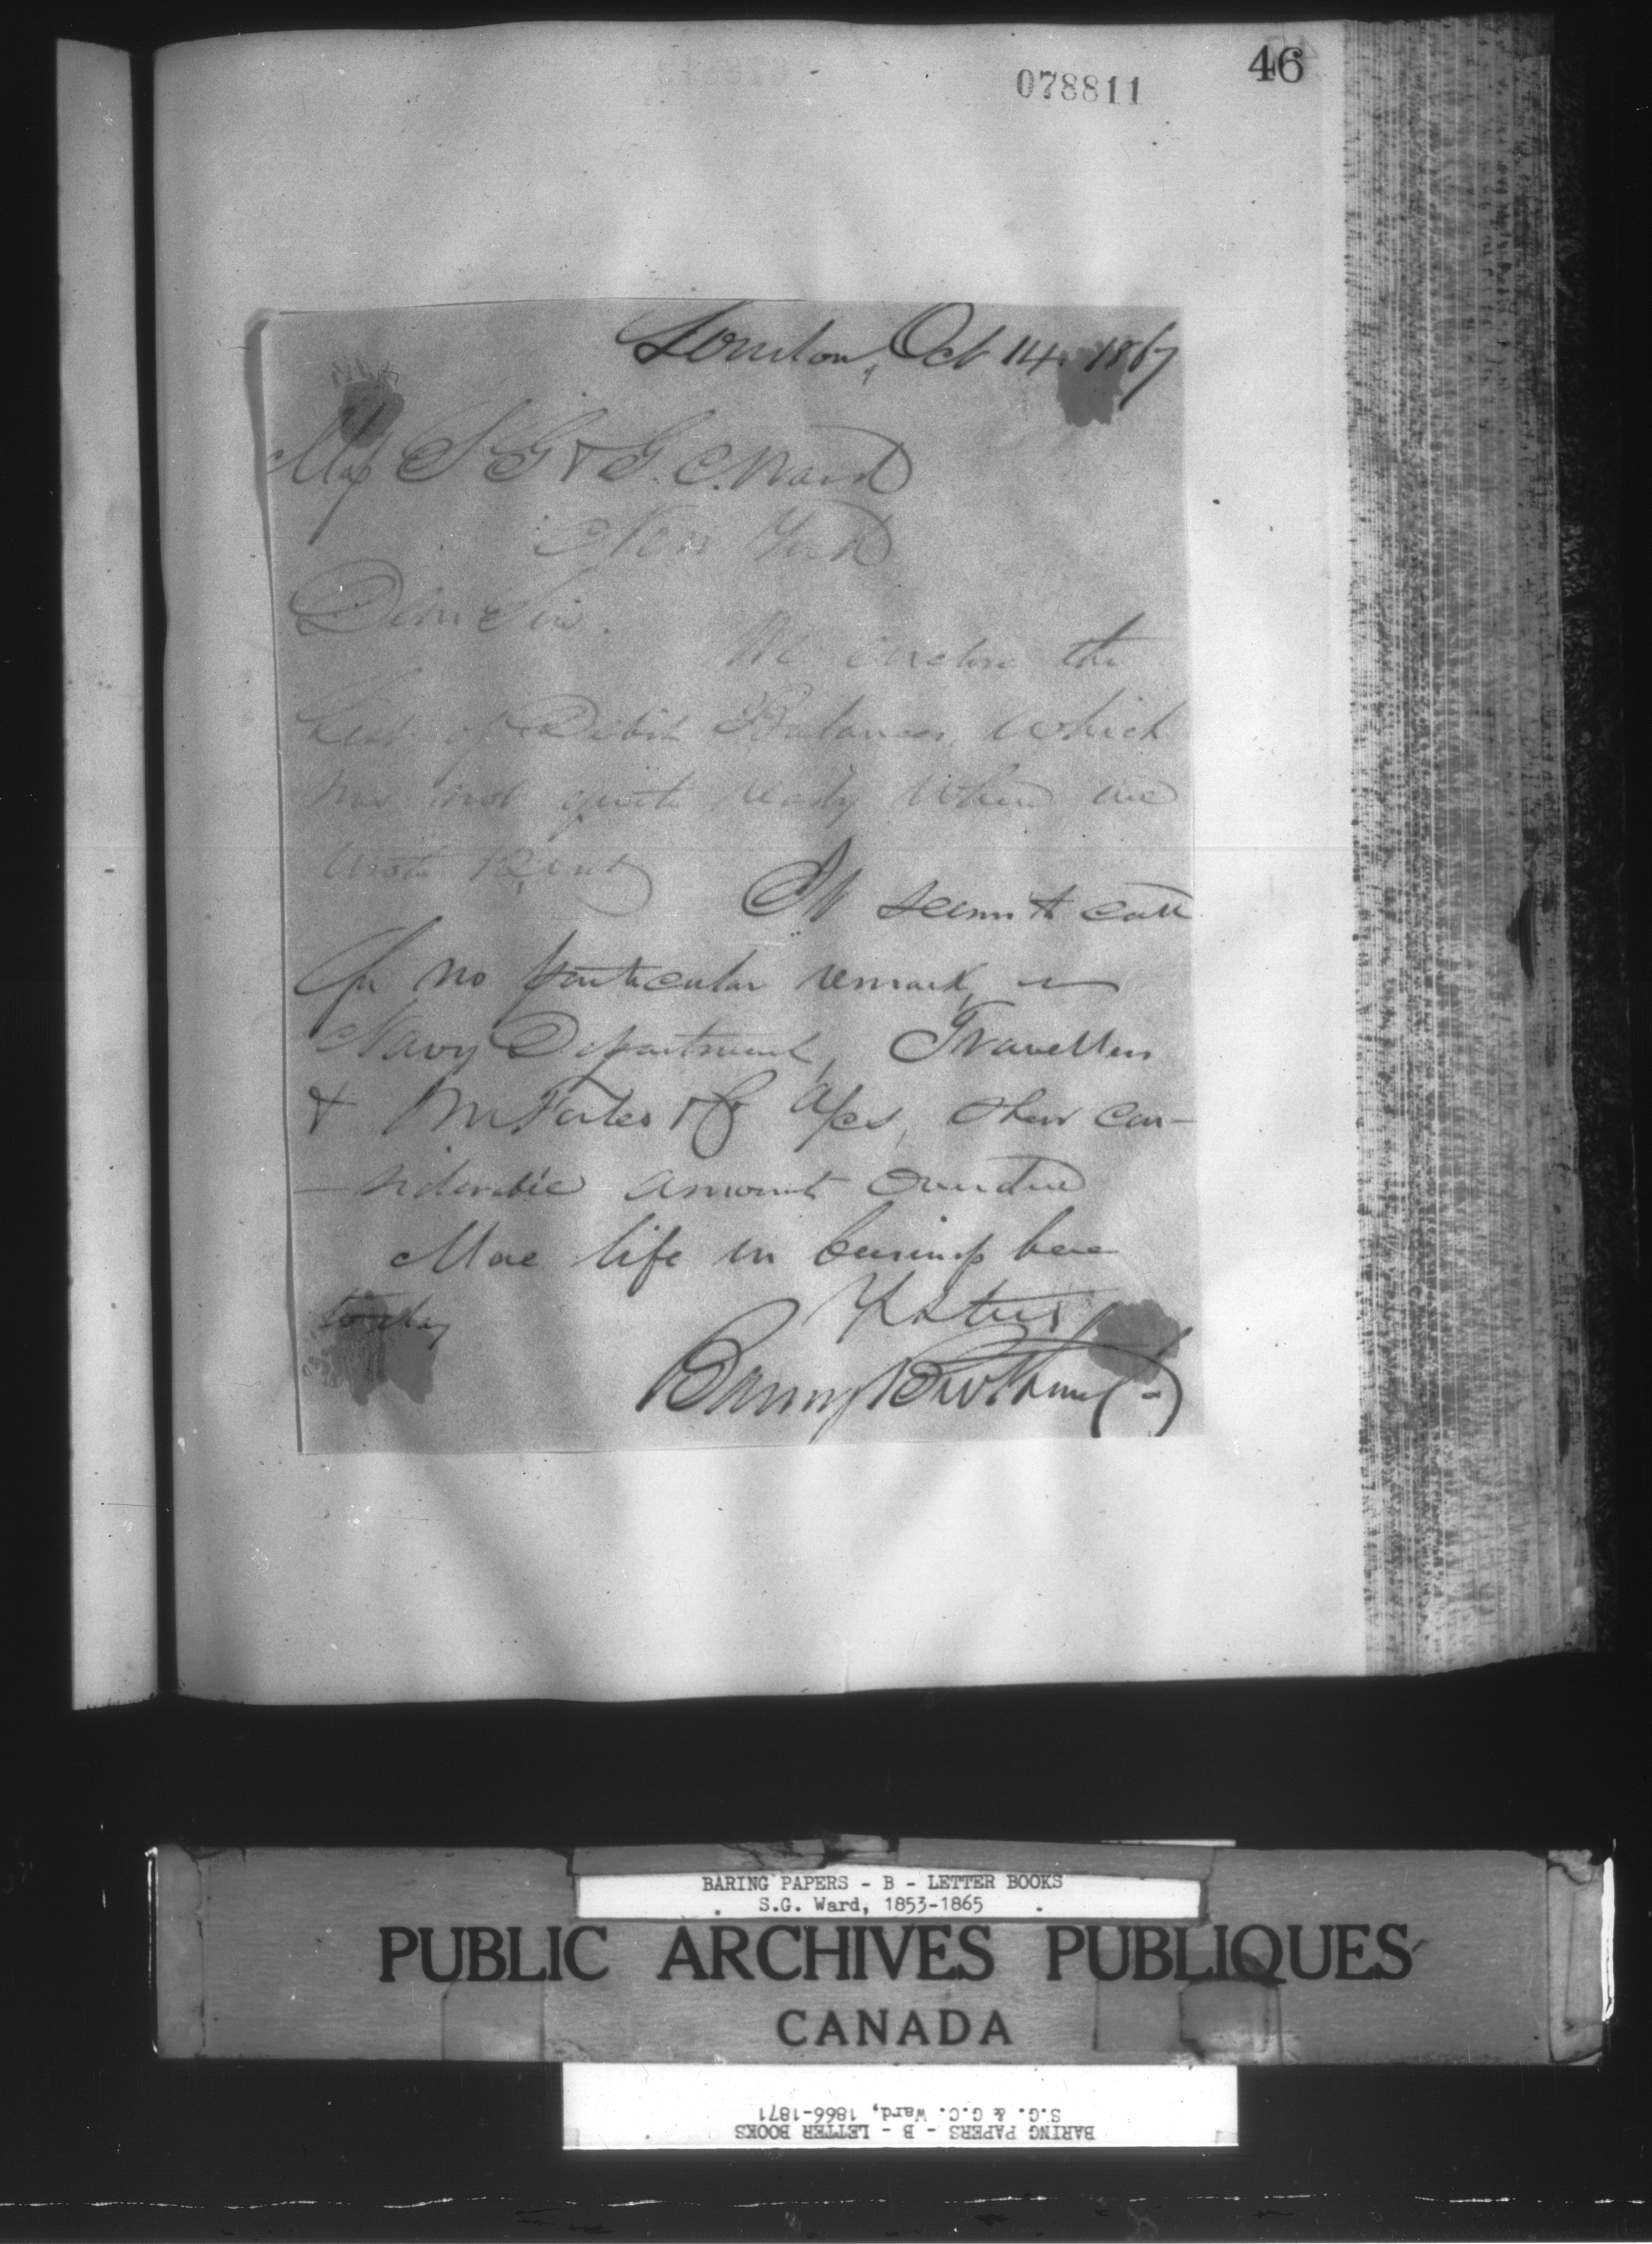 46
078811
London, Oct 14. 1867
Mess S G & G. C. Ward
New York
Dear Sirs.
We enclose the
List of Debit Balances, which
was not quite ready when we
wrote
It seems to call
for no particular remark,
Navy Department, Travellers
& Forbes & Co a/cs, show con-
-siderable amount overdue
More life in business here
to day
Yrs truly
Baring Brothers & Co
BARING PAPERS - B - LETTER BOOKS
S.G. Ward, 1853-1865
PUBLIC ARCHIVES PUBLIQUES
CANADA
BARING PAPERS - B - LETTER BOOKS
S.G. & G.C. Ward, 1866-1871